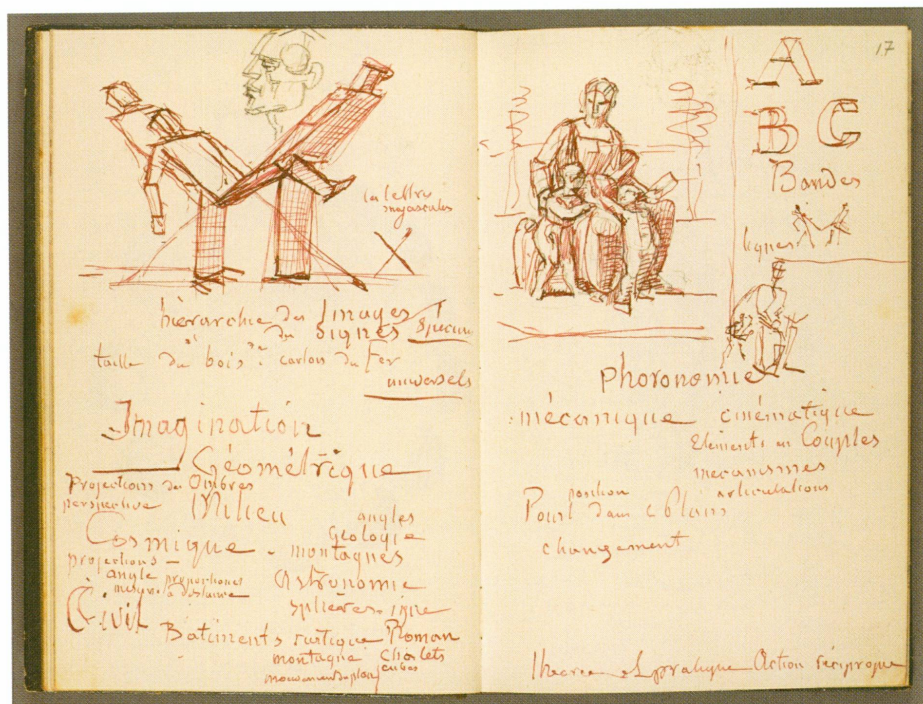 la lettre
majuscules
hierarchie des Images
du Signes
taille du bois
carton du Fer
universels
Imagination
Géométrique
Projections des Ombres
perspective
Milieu
angles
Géologie
Cosmique - montagnes
projections -
angle proportions
à distance
Astronomie
sphères
Civil
Batiments rustique Roman
montagne chalets
cubes
17
A
B C
Bandes
lignes
Phoronomie
mécanique cinématique
Elements en Couples
mecanismes
position articulations
Point dans
changement
Theorie et pratique Action réciproque